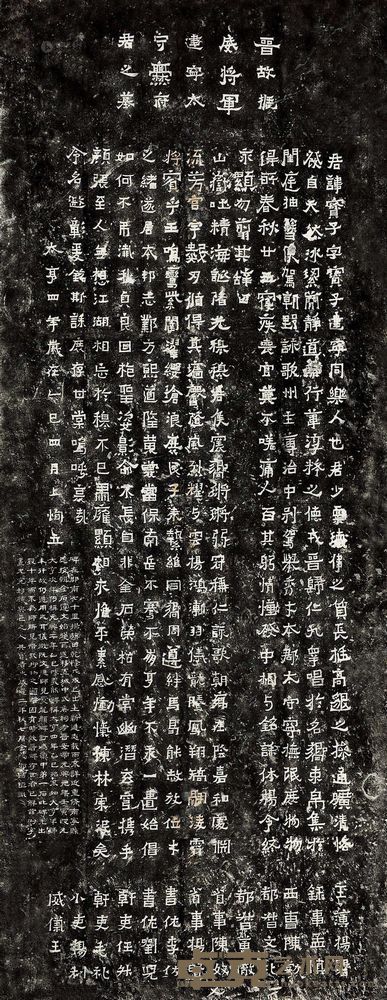 晉故振
威將軍
建寧太
守爨府
君之墓
君諱寶子字寶子建寧同樂人也君少稟瓌偉之質長挺高邈之操通曠清恪
發自天然冰絜簡靜道兼行葦淳粹之德戎晉歸仁九皋唱於名嚮束帛集於
閨庭抽簪俟駕朝野詠歌州主簿治中別駕舉秀才本郡太守寧撫氓庶物物
得所春秋廿五寢疾喪官莫不嗟痛人百其躬情慟發中相與銘誄休揚令終
永顯勿翦其辭曰
山嶽吐精海誕陷光穆穆君侯震響鏘鏘弱冠稱仁詠歌朝鄉在陰嘉和處淵
流芳宮宇數刃循得其墙馨隨風烈燿與雲揚鴻漸羽儀龍騰鳳翔矯翮凌霄
將賓乎王鳴鸞紫闥濯纓滄浪庶民子來縶維同嚮周遵絆馬曷能赦放位才
之緒遂居本邦志鄴方熙道隆黃裳當保南岳不騫不崩享年不永一匱始倡
如何不弔殲我貞良回抱聖姿影命不長自非金石榮枯有常幽潛玄穹攜手
顏張至人無想江湖相忘於穆不已肅雍顯相永惟平素感慟愾慷林宗沒矣
令名遐彰爰銘斯誄庶存甘棠嗚呼哀哉
大亨四年歲在乙巳四月上恂立
主簿楊磐
錄事孟慎
西曹陳勃
都督文禮
都督董徹
省事陳奴
省事楊賢
書佐李仂
書佐劉兒
幹吏任升
幹吏毛礼
小吏楊利
威儀王